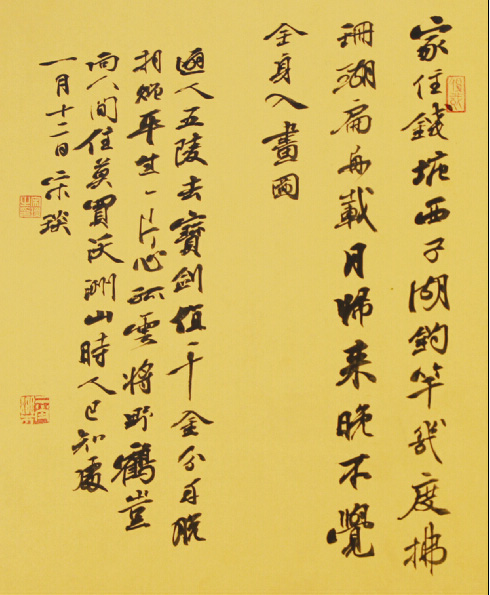 家住錢塘西子湖釣竿幾度拂
珊瑚扁舟載月歸來晚不覺
全身入畫圖
遊人五陵去寶劍值千金分手脫
相贈平生一片心孤雲將野鶴豈
向人間住莫買沃洲山時人已知處
一月十二日宋